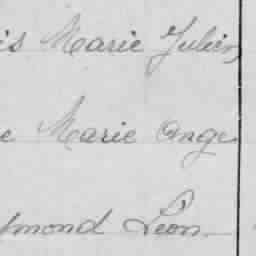 is Marie Julien
e Marie Ange
ymond Léon